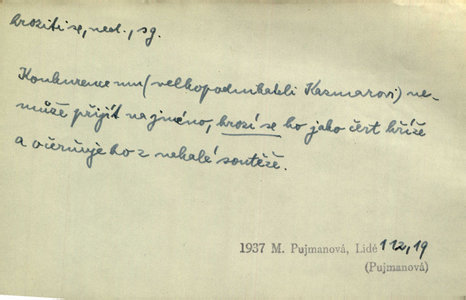 hroziti se, ned., sg.
Konkurence mu (velkopodnikateli Kazmarovi) ne-
může přijít na jméno, hrozí se ho jako čert kříže
a očerňuje ho z nekalé soutěže.
1937 M. Pujmanová, Lidé 112,19
(Pujmanová)